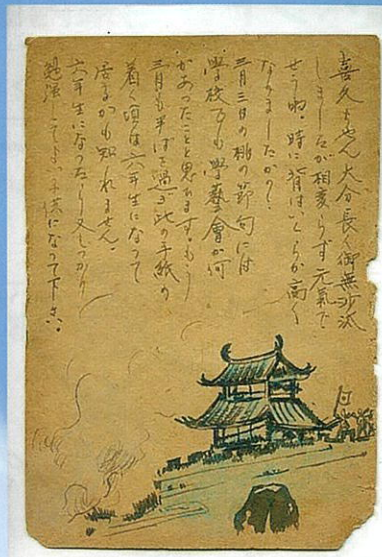 喜久ちゃん大分長く御無沙汰
しましたが相変らず元氣で
せうね。時に背はいくらか高く
なりましたか?
三月三日の桃の節句には
学校でも學藝會か何
かあったことと思はれます。もう
三月も半ばを過ぎ此の手紙の
着く頃は六年生になって
居るかも知れません。
六年生になったら又しっかり
勉強してよい子供になって下さい。